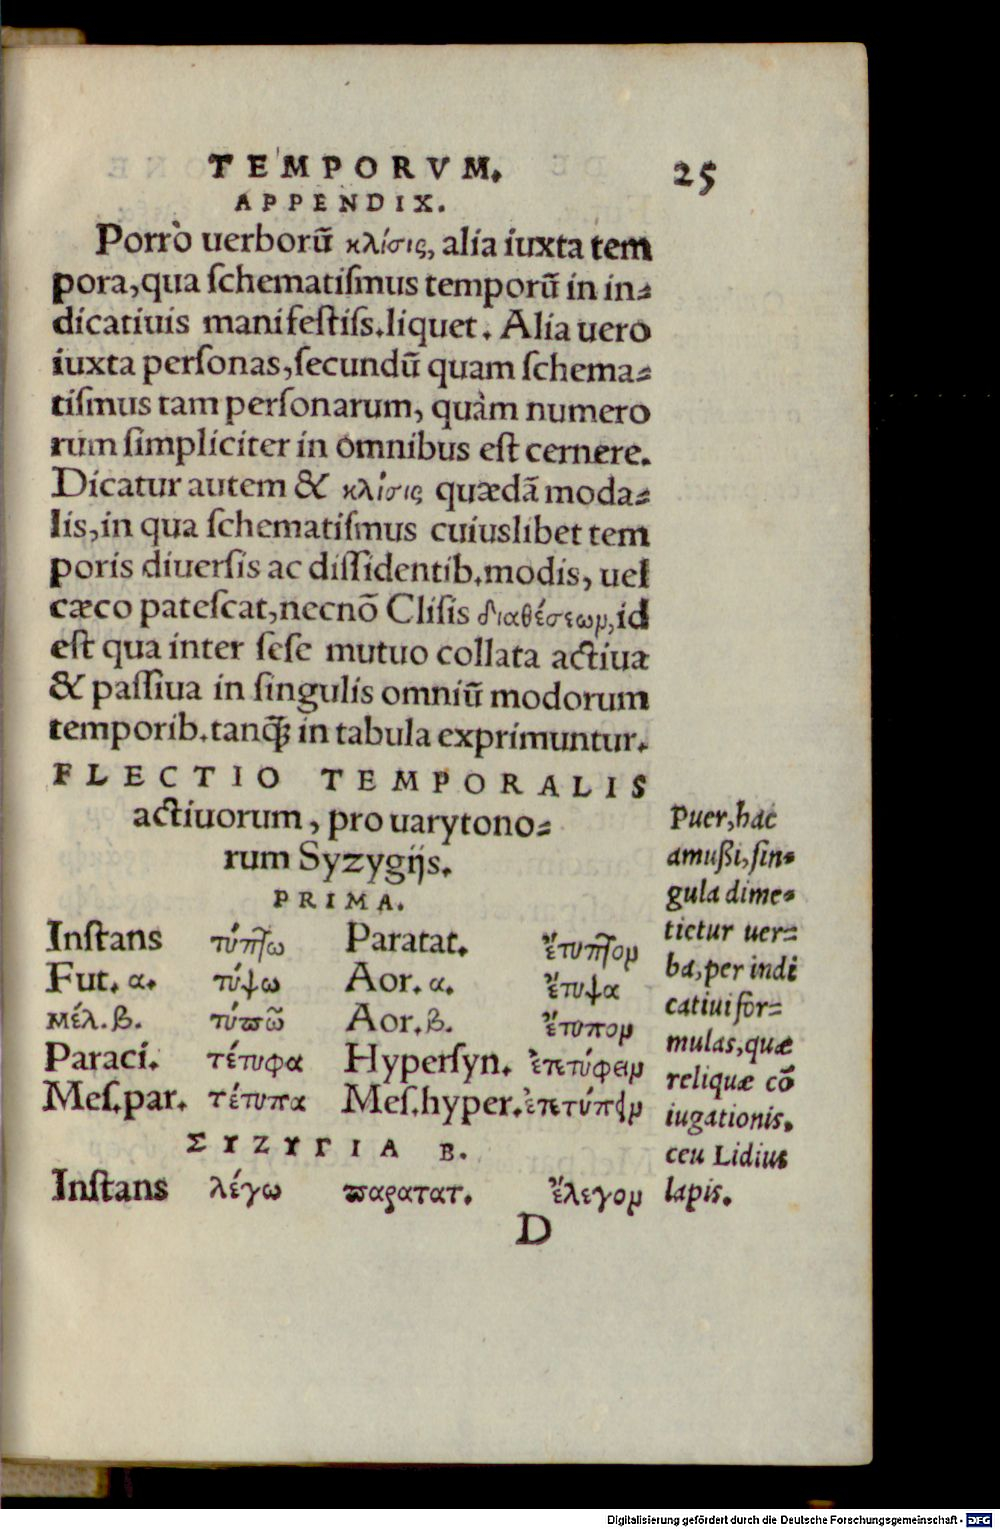 TEMPORVM. 25
APPENDIX.
Porrò uerborũ κλίσις, alia iuxta tem
pora, qua ſchematiſmus temporũ in in-
dicatiuis manifeſtiſs. liquet. Alia uero
iuxta perſonas, ſecundũ quam ſchema-
tiſmus tam perſonarum, quàm numero
rum ſimpliciter in omnibus eſt cernere.
Dicatur autem & κλίσις quædã moda-
lis, in qua ſchematiſmus cuiuslibet tem
poris diuerſis ac diſſidentib. modis, uel
cæco pateſcat, necnõ Cliſis διαθέσεων, id
eſt qua inter ſeſe mutuo collata actiua
& paſſiua in ſingulis omniũ modorum
temporib. tanq̃ in tabula exprimuntur.
FLECTIO TEMPORALIS
actiuorum, pro uarytono-
rum Syzygijs.
PRIMA.
Inſtans τύπτω Paratat. ἔτυπτον
Fut. α. τύψω Aor. α. ἔτυψα
μέλ. β. τυπῶ Aor. β. ἔτυπον
Paraci. τέτυφα Hyperſyn. ἐτετύφειν
Meſ. par. τέτυπα Meſ. hyper. ἐτετύπειν
ΣΥΖΥΓΙΑ Β.
Inſtans λέγω παρατατ. ἔλεγον
D
Puer, hac
amußi, ſin-
gula dime-
tietur uer-
ba, per indi
catiui for-
mulas, quæ
reliquæ cõ
iugationis.
ceu Lidius
lapis.
Digitalisierung gefördert durch die Deutsche Forschungsgemeinschaft - DFG